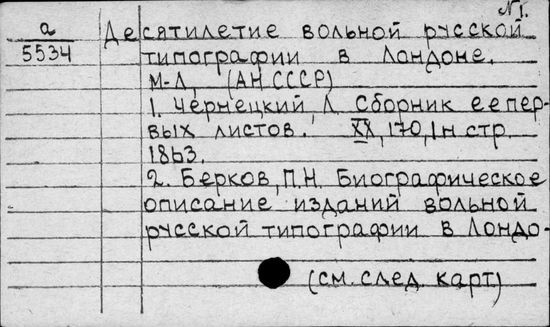 №1.
а
5534
Десятилетие вольной русской
типографии в Лондоне.
М-Л, (АН СССР)
1. Чернецкий, Л. Сборник ее пер-
вых листов. XX, 170, 1 н стр
1863.
2. Берков, П.Н. Биографическое
описание изданий вольной
русской типографии в Лондо-
(см. след. карт)